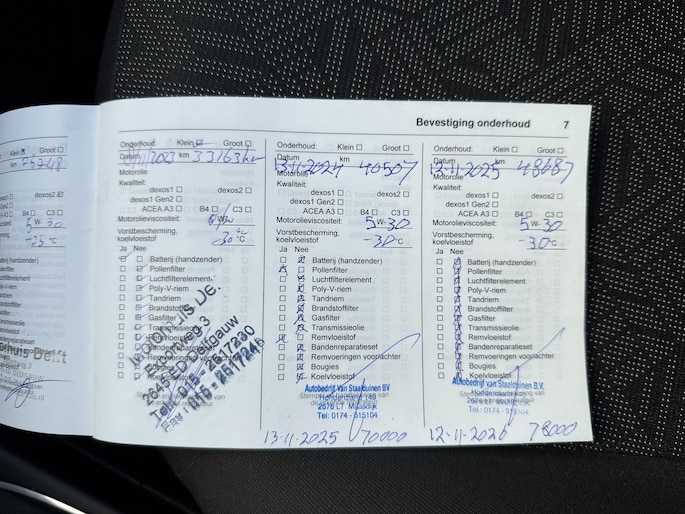 Bevestiging onderhoud 7
Klein Groot
km
dexos2
B4 C3
5 W-30
-25 °C
Delft
Onderhoud: Klein Groot
Datum 2023 km 33163
Motorolie
Kwaliteit:
dexos1 dexos2
dexos1 Gen2
ACEA A3 B4 C3
Motorolieviscositeit:
Vorstbescherming,
koelvloeistof -30 °C
Ja Nee
Batterij (handzender)
Pollenfilter
Luchtfilterelement
Poly-V-riem
Tandriem
Brandstoffilter
Gasfilter
Transmissieolie
Remvloeistof
Bandenreparatieset
Remvoeringen voor/achter
Bougies
Koelvloeistof
Onderhoud: Klein Groot
Datum 13-11-2024 km 40507
Motorolie
Kwaliteit:
dexos1 dexos2
dexos1 Gen2
ACEA A3 B4 C3
Motorolieviscositeit: 5 W-30
Vorstbescherming,
koelvloeistof -30 °C
Ja Nee
Batterij (handzender)
Pollenfilter
Luchtfilterelement
Poly-V-riem
Tandriem
Brandstoffilter
Gasfilter
Transmissieolie
Remvloeistof
Bandenreparatieset
Remvoeringen voor/achter
Bougies
Koelvloeistof
Autobedrijf Van Staalduinen BV
2676 LT Maasdijk
Tel: 0174 - 515104
13-11-2025 70000
Onderhoud: Klein Groot
Datum 12-11-2025 km 48687
Motorolie
Kwaliteit:
dexos1 dexos2
dexos1 Gen2
ACEA A3 B4 C3
Motorolieviscositeit: 5 W-30
Vorstbescherming,
koelvloeistof -30 °C
Ja Nee
Batterij (handzender)
Pollenfilter
Luchtfilterelement
Poly-V-riem
Tandriem
Brandstoffilter
Gasfilter
Transmissieolie
Remvloeistof
Bandenreparatieset
Remvoeringen voor/achter
Bougies
Koelvloeistof
Autobedrijf Van Staalduinen B.V.
2676 LT
Tel.: 0174 - 515104
12-11-2026 78000